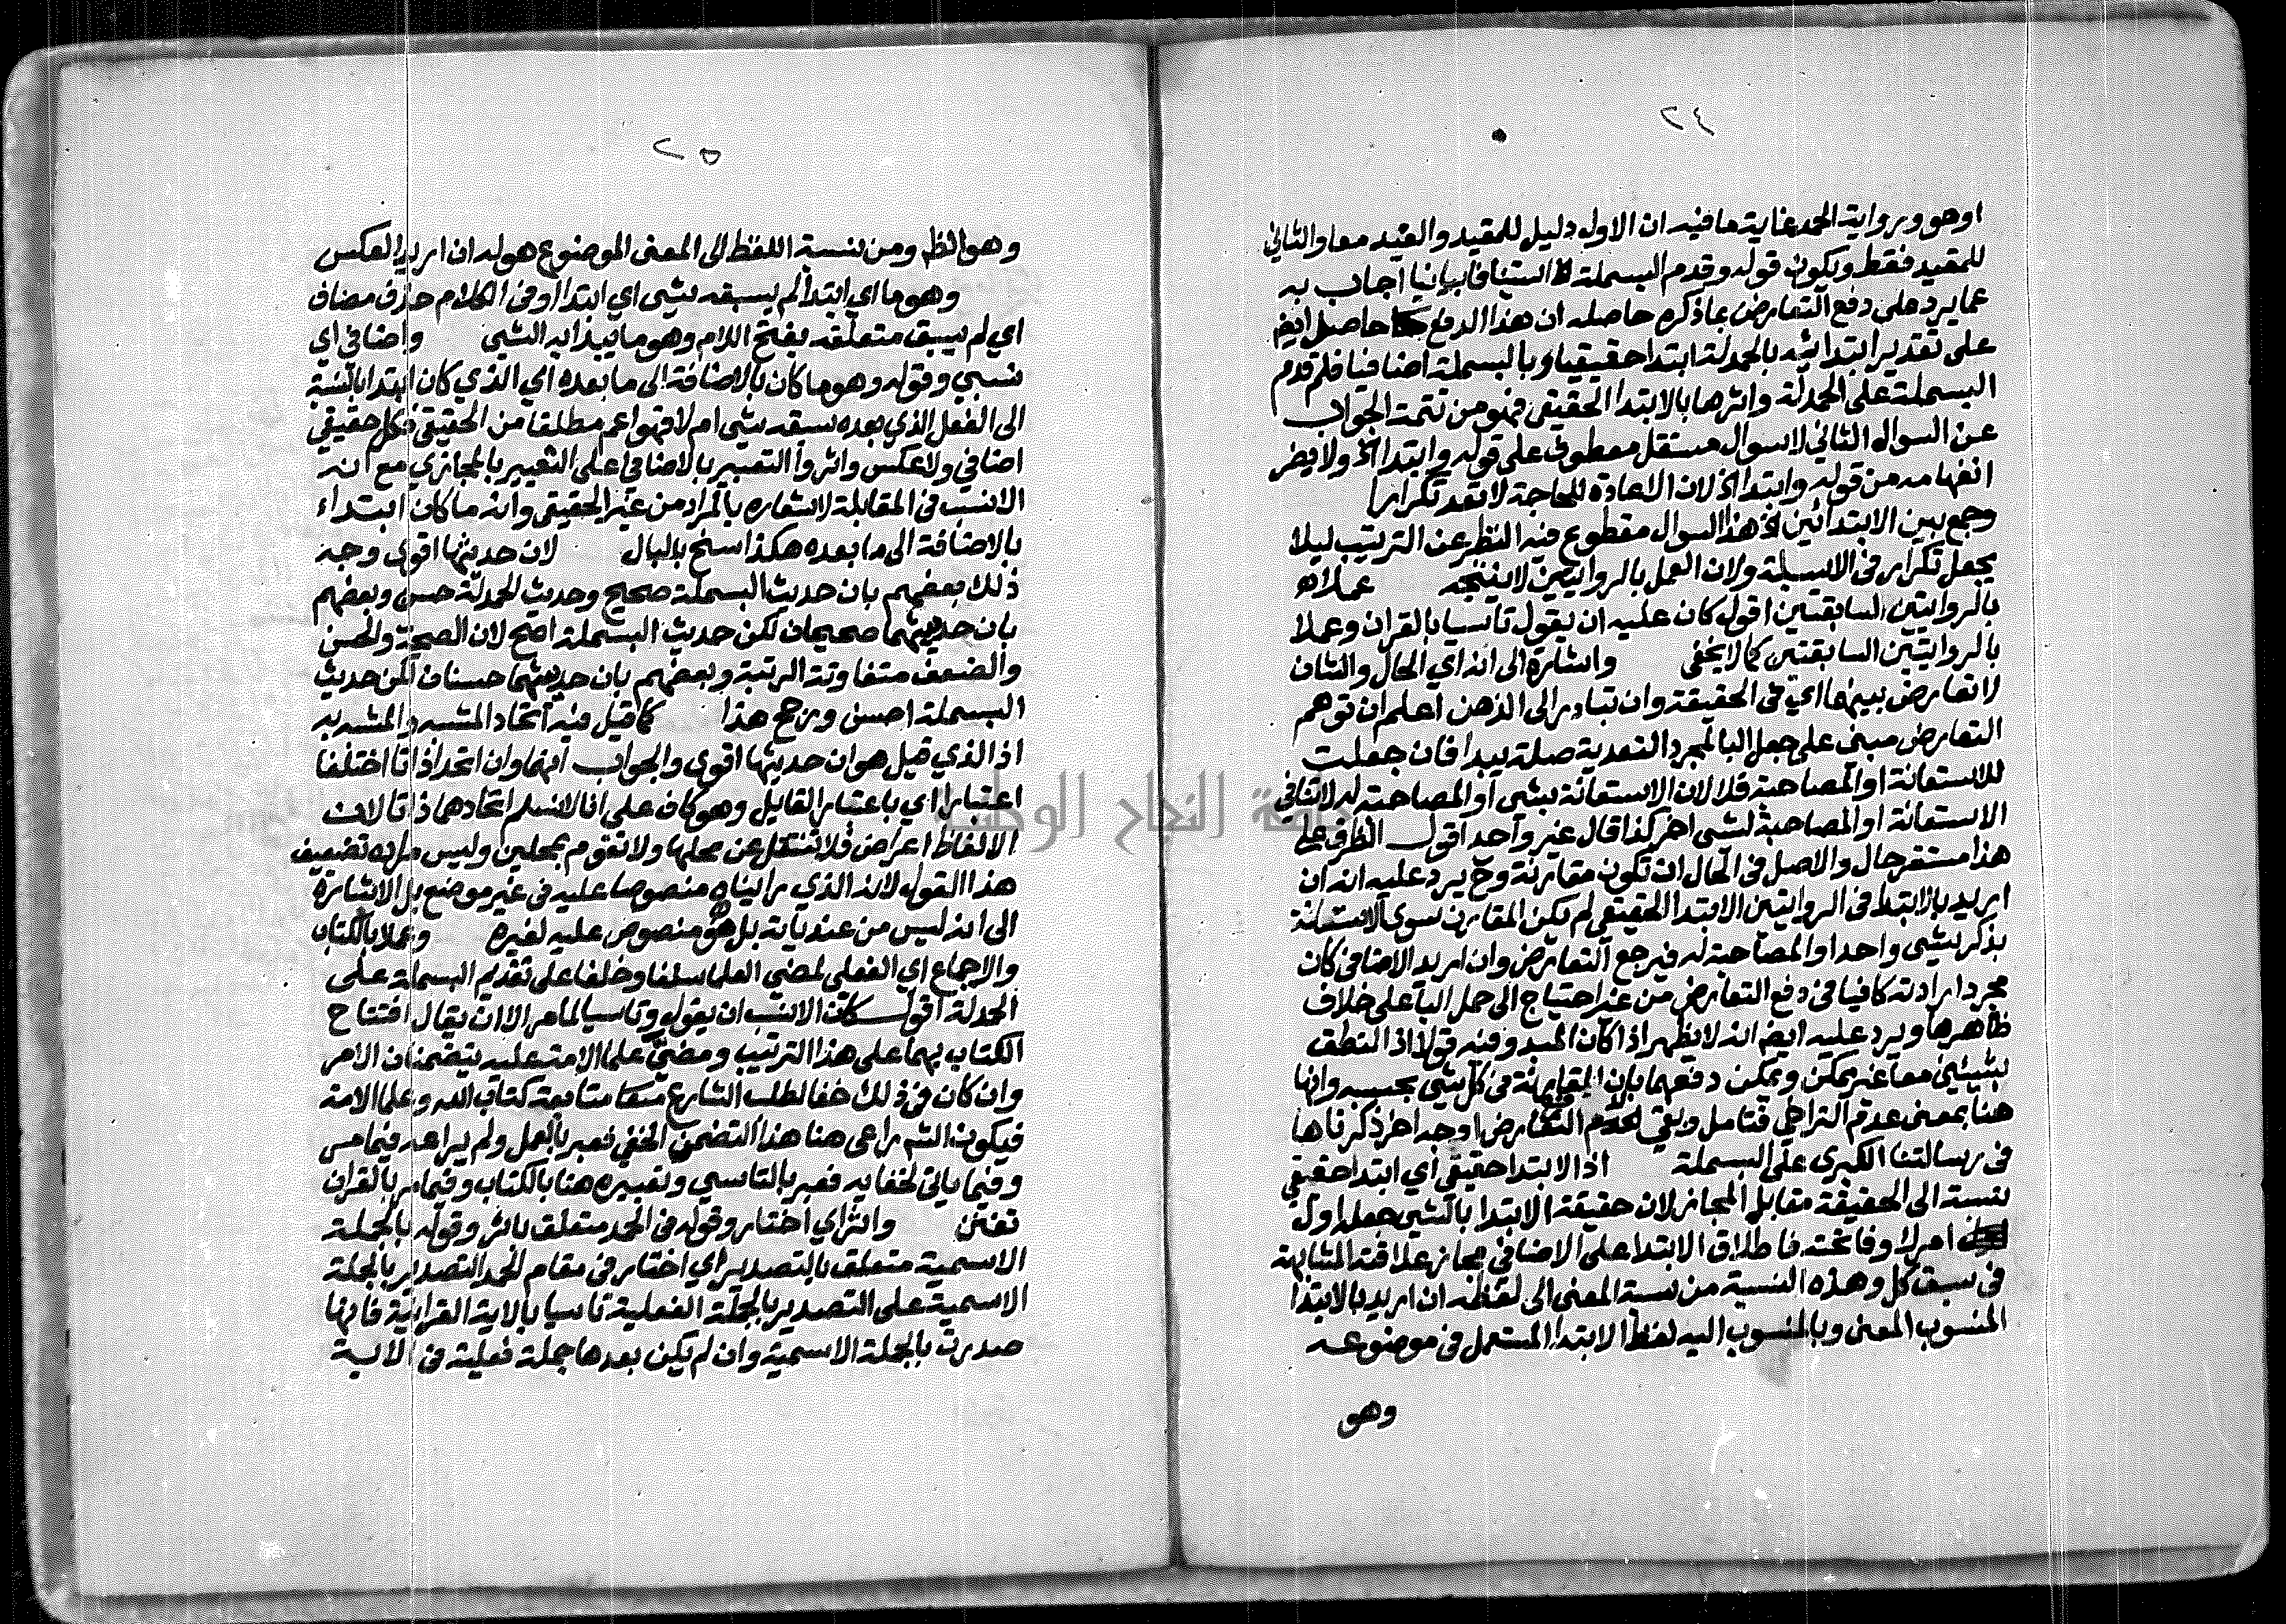 ٢٤
او هو ورواية الحمد غاية ما فيه ان الاول دليل للمقيد والقيد معا والثاني
للمقيد فقط ويكون قوله وقدم البسملة استينافا بيانيا اجاب به
عما يرد على دفع التعارض بما ذكره حاصله ان هذا الدفع حاصل ايض
على تقدير ابتدائه بالحمدلة ابتدا حقيقيا وبالبسملة اضافيا فلم قدم
البسملة على الحمدلة واثرها بالابتدا الحقيقي فهو من تتمة الجواب
عن السوال الثاني لا سوال مستقل معطوف على قوله وابتدا الخ ولا يضر
انفهامه من قوله وابتدا الخ لان الاعادة للحاجة لا تعد تكرارا
وجمع بين الابتدائين هذا السوال مقطوع فيه النظر عن الترتيب ليلا
يجعل تكرار في الاسيلة ولان العمل بالروايتين لا ينتجه عملا
بالروايتين السابقتين اقول كان عليه ان يقول تأسيا بالقران وعملا
بالروايتين السابقتين كما لا يخفى واشارة الى انه اي الحال والشان
لا تعارض بينهما اي في الحقيقة وان تبادر الى الذهن اعلم ان توهم
التعارض مبنى على جعل البا لمجرد التعدية صلة يبدا فان جعلت
للاستعانة او المصاحبة فلا لان الاستعانة بشي او المصاحبة له لا تنافي
الاستعانة او المصاحبة لشي اخر كذا قال غير واحد اقول الظرف على
هذا مستقر حال والاصل في الحال ان تكون مقارنة وح يرد عليه انه ان
اريد بالابتدا في الروايتين الابتدا الحقيقي لم يكن المقارن سوى الاستعانة
بذكر شي واحد او المصاحبة له فيرجع التعارض وان اريد الاضافي كان
مجرد ارادته كافيا في دفع التعارض من غير احتياج الى حمل البا على خلاف
ظاهرها ويرد عليه ايض انه لا يظهر اذا كان المبدو فيه قولا اذ النطق
بشيئين معا غير ممكن ويمكن دفعهما بان المقارنة في كل شي بحسبه وانها
هنا بمعنى عدم التراخي فتامل وبقي لعدم التعارض اوجه اخر ذكرناها
في رسالتنا الكبرى على البسملة اذ الابتدا حقيقي اي ابتدا حقيقي
نسبة الى الحقيقة مقابل المجاز لان حقيقة الابتدا بالشي جعله اول
امر لا وفاتحته فاطلاق الابتدا على الاضافي مجاز علاقته المشابهة
في سبق كل وهذه النسبة من نسبة المعنى الى لفظه ان اريد بالابتدا
المنسوب المعنى وبالمنسوب اليه لفظ الابتدا المستعمل في موضوعه
وهو
٢٥
وهو الظ ومن نسبة اللفظ الى المعنى الموضوع هو له ان اريد العكس
وهو ما اي ابتدا لم يسبقه شي اي ابتدا او في الكلام حذف مضاف
اي لم يسبق متعلقه بفتح اللام وهو ما يبدا به الشي واضافي اي
نسبي وقوله وهو ما كان بالاضافة الى ما بعده اي الذي كان ابتدا بالنسبة
الى الفعل الذي بعده سبقه شي ام لا فهو اعم مطلقا من الحقيقي فكل حقيقي
اضافي ولا عكس واثروا التعبير بالاضافي على التعبير بالمجازي مع انه
الانسب في المقابلة لاشعاره بالمراد من غير الحقيقي وانه ما كان ابتداء
بالاضافة الى ما بعده هكذا سنح بالبال لان حديثها اقوى وجه
ذلك بعضهم بان حديث البسملة صحيح وحديث الحمدلة حسن وبعضهم
بان حديثهما صحيحان لكن حديث البسملة اصح لان الصحة والحسن
والضعف متفاوتة الرتبة وبعضهم بان حديثهما حسنان لكن حديث
البسملة احسن ورجح هذا كما قيل فيه اتحاد المشبه والمشبه به
اذ الذي قيل هو ان حديثها اقوى والجواب انهما وان اتحدا ذاتا اختلفا
اعتبارا اي باعتبار القايل وهو كاف على انا لا نسلم اتحادهما ذاتا لان
الالفاظ اعراض فلا تنتقل عن محلها ولا تقوم بمحلين وليس مراده تضعيف
هذا القول لانه الذي رايناه منصوصا عليه في غير موضع بل الاشارة
الى انه ليس من عندياته بل هو منصوص عليه لغيره وعملا بالكتاب
والاجماع اي الفعلي لمضي العلما سلفا وخلفا على تقديم البسملة على
الحمدلة اقول كان الانسب ان يقول وتاسيا لما مر الا ان يقال افتتاح
الكتاب بهما على هذا الترتيب ومضي علما الامة عليه يتضمنان الامر
وان كان في ذلك خفا لطلب الشارع متابعة كتاب الله وعلما الامة
فيكون الشم راعى هنا هذا التضمن الخفي فعبر بالعمل ولم يراعه فيما مر
وفيما ياتي لخفايه فعبر بالتاسي وتعبيره هنا بالكتاب وفيما مر بالقران
تفنن واثر اي اختار وقوله في الحمد متعلق باثر وقوله بالجملة
الاسمية متعلق بالتصدير اي اختار في مقام الحمد التصدير بالجملة
الاسمية على التصدير بالجملة الفعلية تاسيا بالاية القرانية فانها
صدرت بالجملة الاسمية وان لم يكن بعدها جملة فعلية في الاية
جامعة النجاح الوطنية